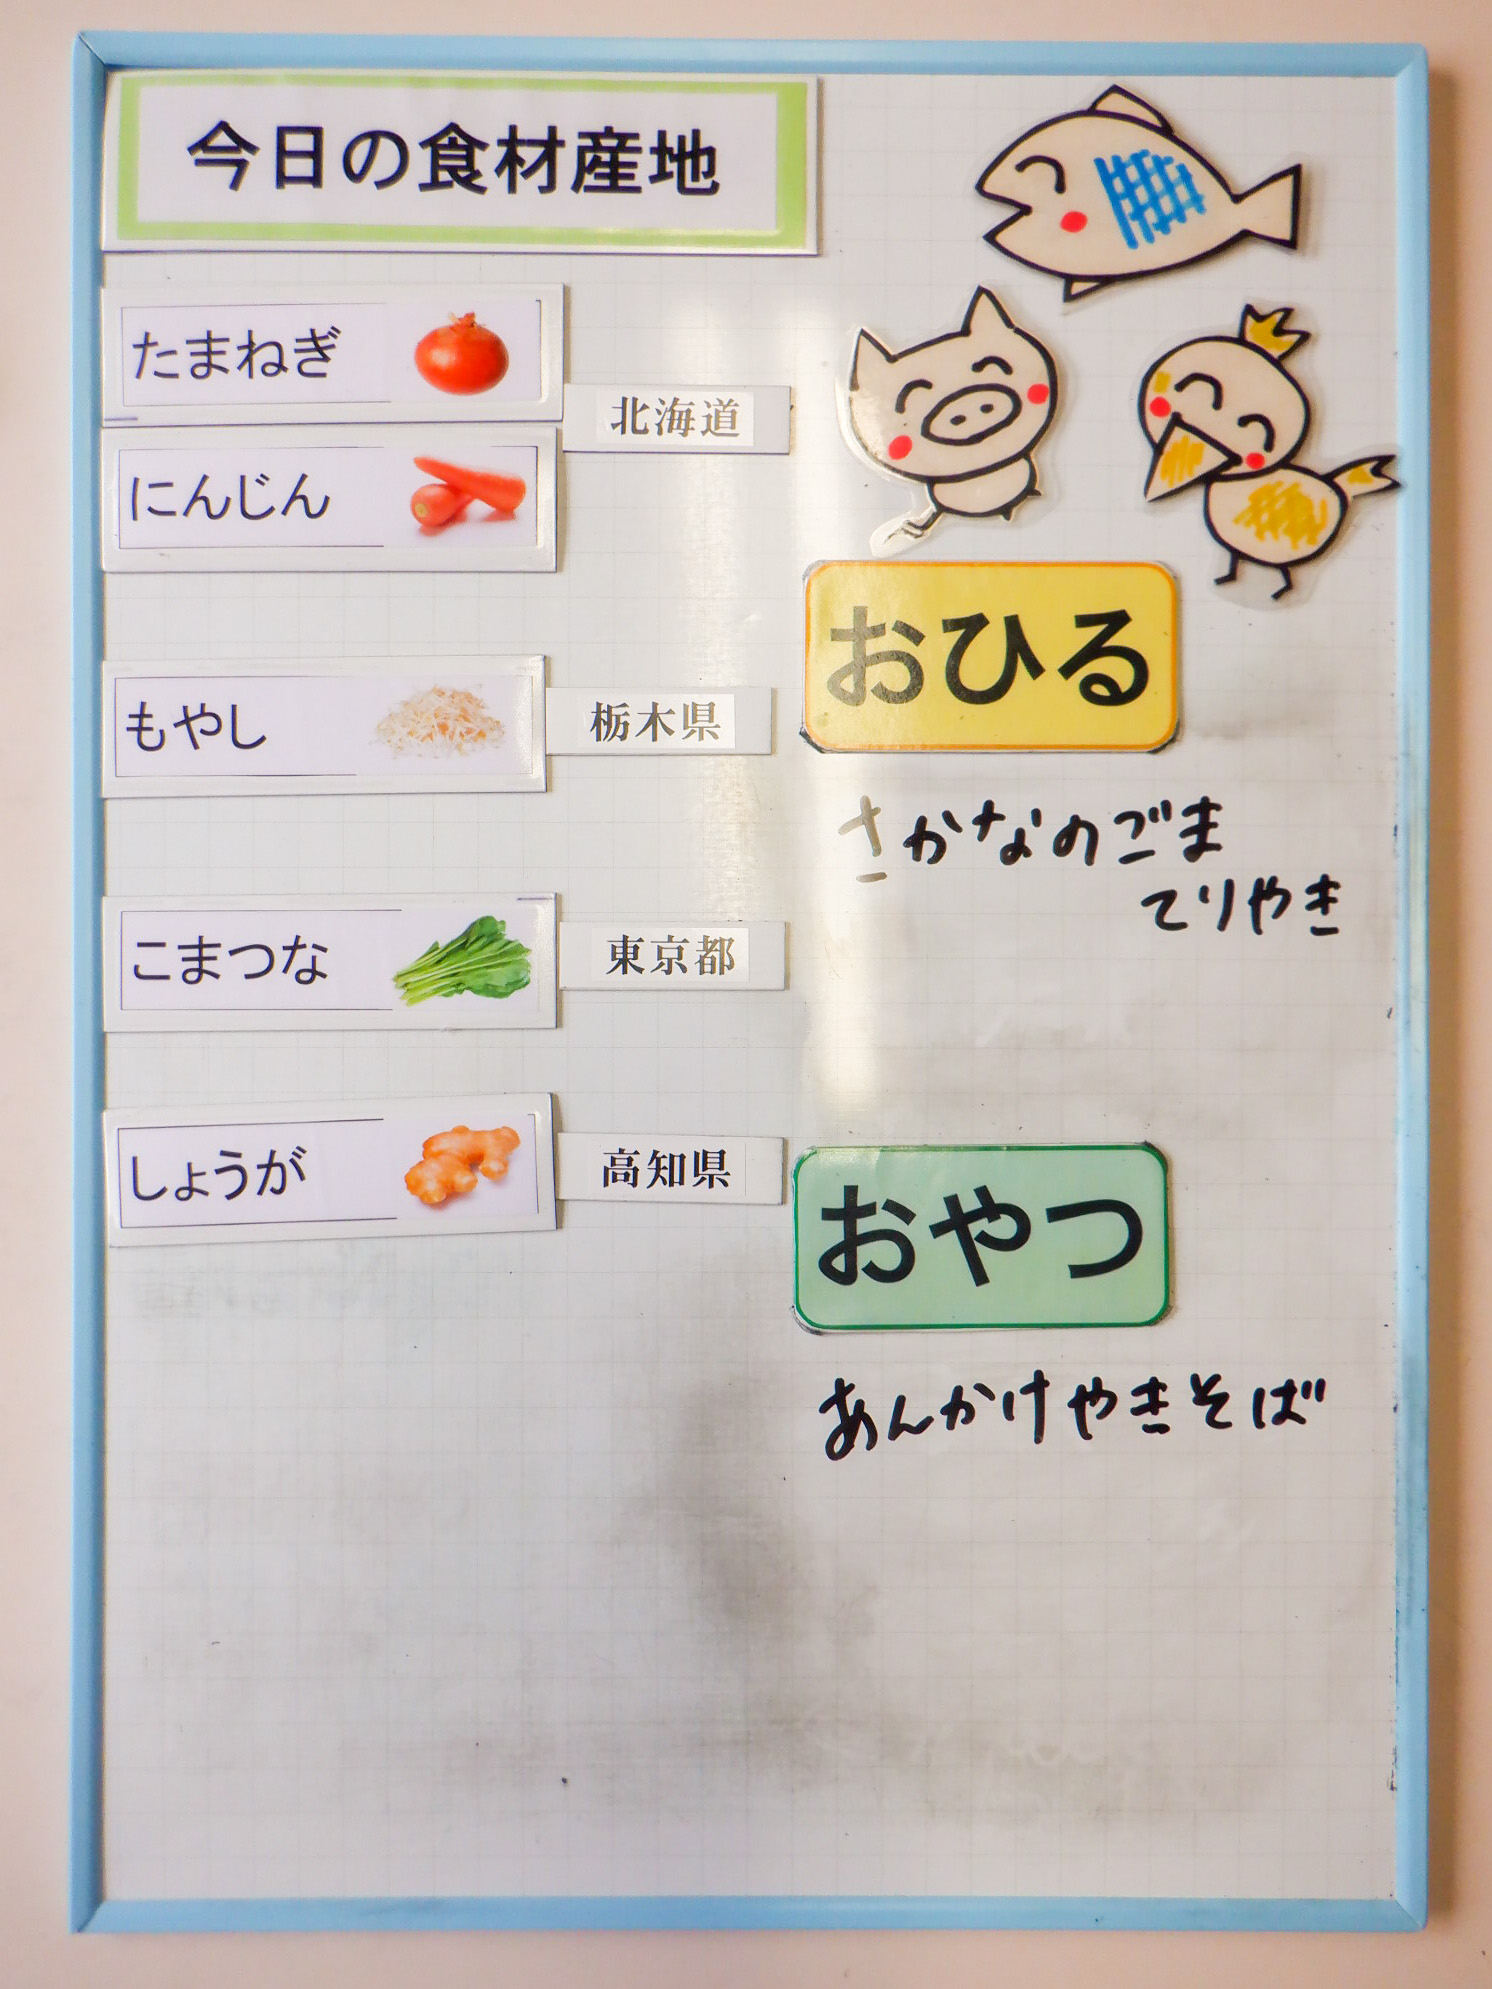 今日の食材産地
たまねぎ
にんじん
北海道
もやし
栃木県
こまつな
東京都
しょうが
高知県
おひる
さかなのごま
てりやき
おやつ
あんかけやきそば